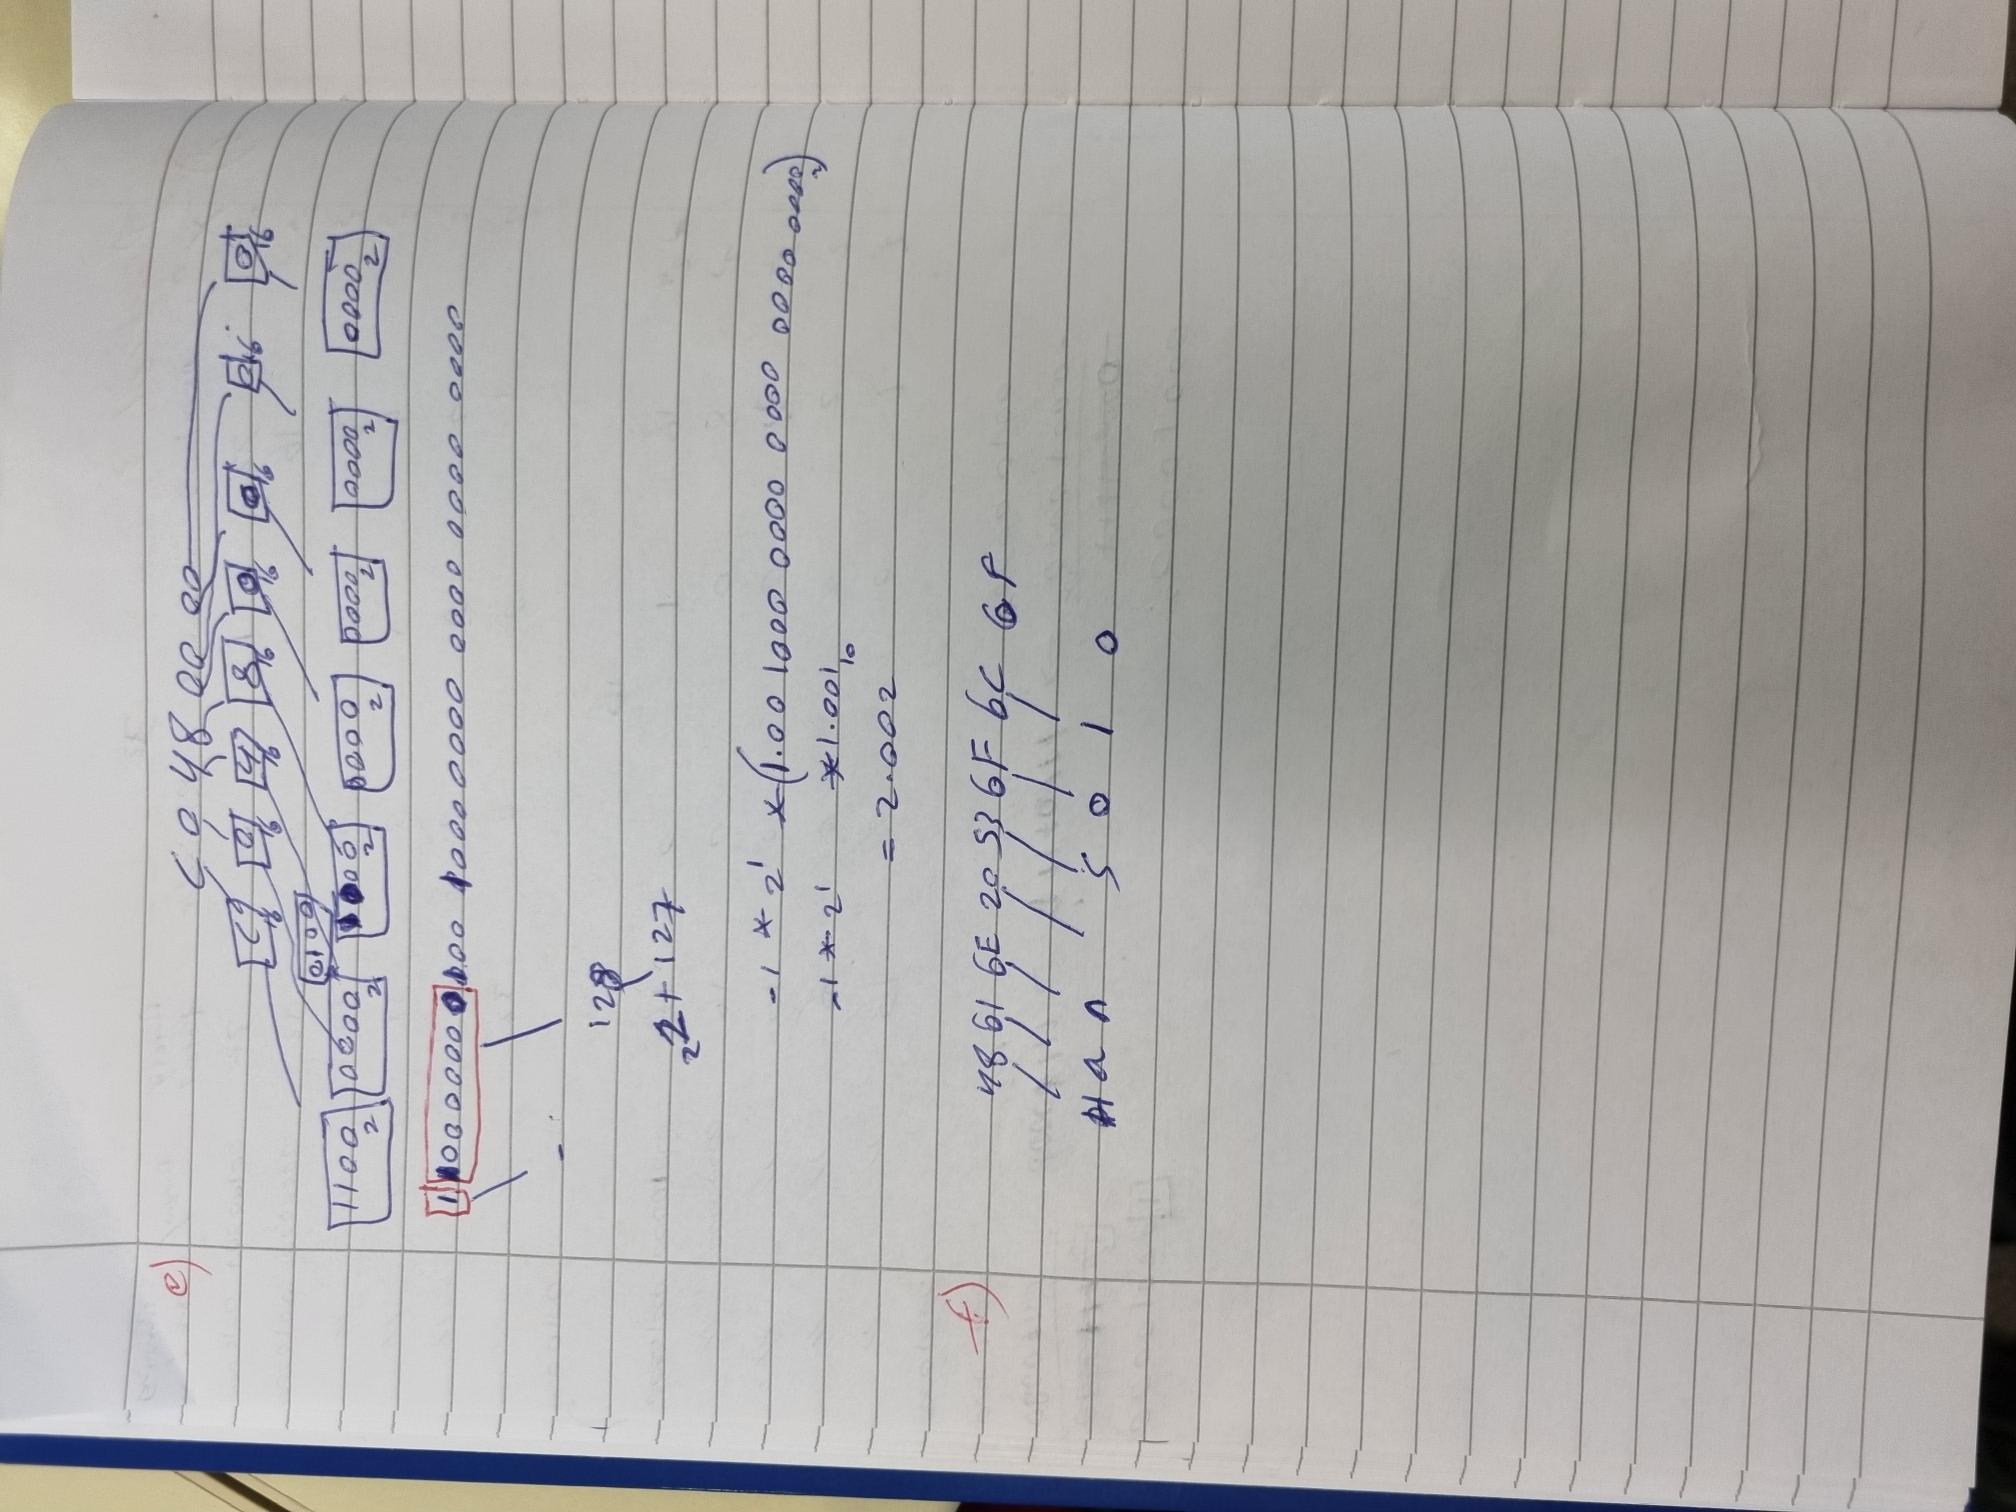 e)
C0 48 00 00
C16 016 416 816 016 016 016 016
0100
11002 00002 10002 00002 00002 00002 00002
1 10000000 100 10000000000 0000 0000 0000
-
128
1 + 127
2
-1 * 2^1 * (1.001000 0000 0000 0000 00002)
-1 * 2^1 * 1.00110
= 2.002
f)
48 61 6E 20 53 6F 6C 6F
H a n S o l o